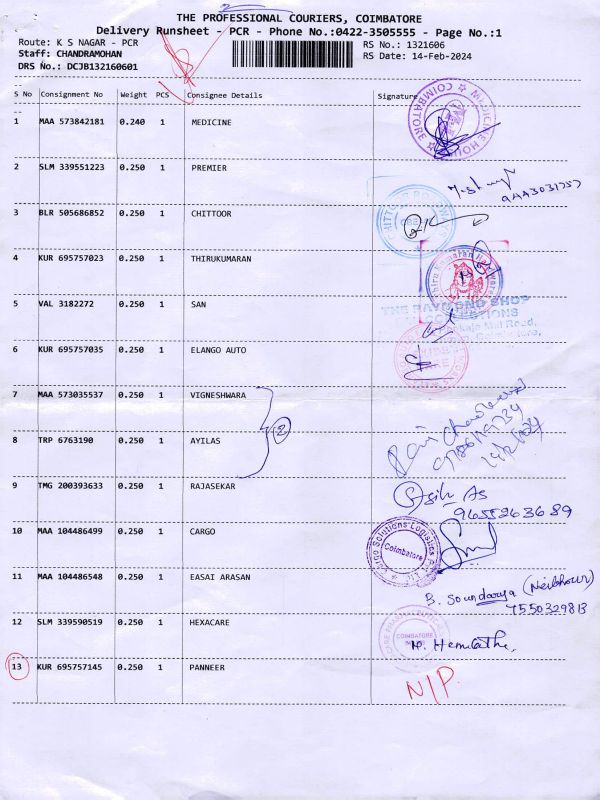 THE PROFESSIONAL COURIERS, COIMBATORE
Delivery Runsheet - PCR - Phone No.:0422-3505555 - Page No.:1
Route: K S NAGAR - PCR RS No.: 1321606
Staff: CHANDRAMOHAN RS Date: 14-Feb-2024
DRS No.: DCJB132160601
S No Consignment No Weight PCS Consignee Details Signature
1 MAA 573842181 0.240 1 MEDICINE
MEDICINE HOUSE COIMBATORE
2 SLM 339551223 0.250 1 PREMIER
3 BLR 505686852 0.250 1 CHITTOOR
4 KUR 695757023 0.250 1 THIRUKUMARAN
5 VAL 3182272 0.250 1 SAN
THE RAYMOND SHOP
Mill Road,
6 KUR 695757035 0.250 1 ELANGO AUTO
7 MAA 573035537 0.250 1 VIGNESHWARA
2
8 TRP 6763190 0.250 1 AYILAS
9 TMG 200393633 0.250 1 RAJASEKAR
9655263689
10 MAA 104486499 0.250 1 CARGO
Cargo Solutions Logistics
Coimbatore
11 MAA 104486548 0.250 1 EASAI ARASAN
B. Soundarya (Neibhour)
7550329813
12 SLM 339590519 0.250 1 HEXACARE
COIMBATORE
13 KUR 695757145 0.250 1 PANNEER
N/P.